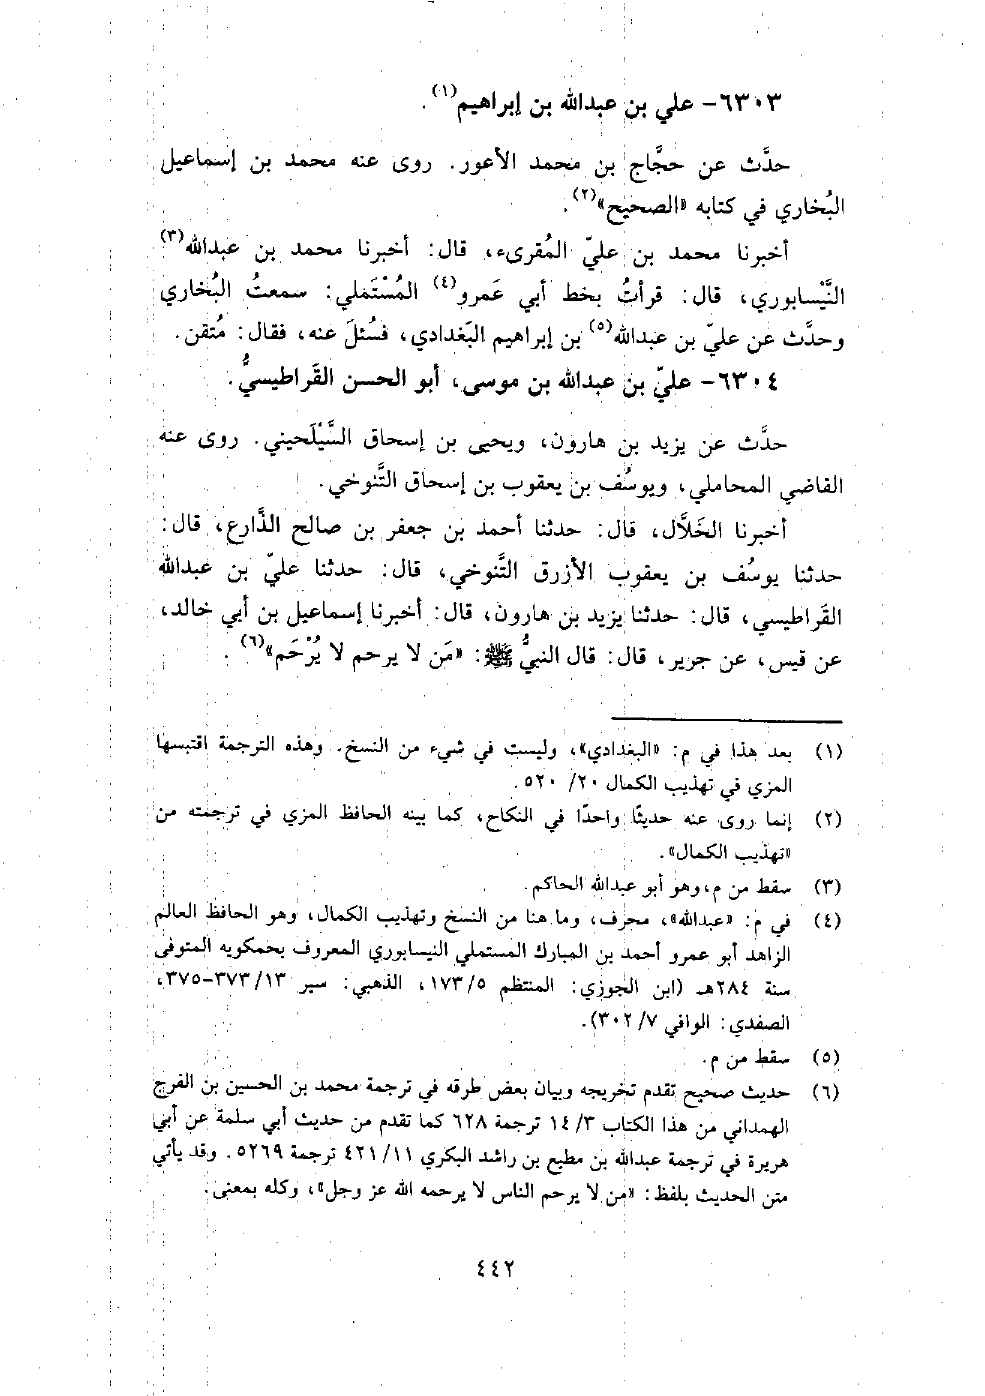 ٦٣٠٣- علي بن عبدالله بن إبراهيم(١).
حدَّث عن حجَّاج بن محمد الأعور. روى عنه محمد بن إسماعيل
البُخاري في كتابه «الصحيح»(٢).
أخبرنا محمد بن عليّ المُقرىء، قال: أخبرنا محمد بن عبدالله(٣)
النَّيْسابوري، قال: قرأتُ بخط أبي عَمرو(٤) المُسْتَملي: سمعتُ البُخاري
وحدَّث عن عليّ بن عبدالله(٥) بن إبراهيم البَغدادي، فسُئلَ عنه، فقال: مُتقن.
٦٣٠٤- عليّ بن عبدالله بن موسى، أبو الحسن القَراطيسيُّ.
حدَّث عن يزيد بن هارون، ويحيى بن إسحاق السَّيْلَحيني. روى عنه
القاضي المحاملي، ويوسُف بن يعقوب بن إسحاق التَّنوخي.
أخبرنا الخَلَّال، قال: حدثنا أحمد بن جعفر بن صالح الذَّارع، قال:
حدثنا يوسُف بن يعقوب الأزرق التَّنوخي، قال: حدثنا عليّ بن عبدالله
القَراطيسي، قال: حدثنا يزيد بن هارون، قال: أخبرنا إسماعيل بن أبي خالد،
عن قيس، عن جرير، قال: قال النبيُّ ﷺ: «مَن لا يرحم لا يُرْحَم»(٦).
(١) بعد هذا في م: «البغدادي»، وليست في شيء من النسخ. وهذه الترجمة اقتبسها
المزي في تهذيب الكمال ٢٠/ ٥٢٠.
(٢) إنما روى عنه حديثًا واحدًا في النكاح، كما بينه الحافظ المزي في ترجمته من
«تهذيب الكمال».
(٣) سقط من م، وهو أبو عبدالله الحاكم.
(٤) في م: «عبدالله»، محرف، وما هنا من النسخ وتهذيب الكمال، وهو الحافظ العالم
الزاهد أبو عمرو أحمد بن المبارك المستملي النيسابوري المعروف بحمكويه المتوفى
سنة ٢٨٤هـ (ابن الجوزي: المنتظم ٥/ ١٧٣، الذهبي: سير ١٣/ ٣٧٣-٣٧٥،
الصفدي: الوافي ٧/ ٣٠٢).
(٥) سقط من م.
(٦) حديث صحيح تقدم تخريجه وبيان بعض طرقه في ترجمة محمد بن الحسين بن الفرج
الهمداني من هذا الكتاب ٣/ ١٤ ترجمة ٦٢٨ كما تقدم من حديث أبي سلمة عن أبي
هريرة في ترجمة عبدالله بن مطيع بن راشد البكري ١١/ ٤٢١ ترجمة ٥٢٦٩. وقد يأتي
متن الحديث بلفظ: «من لا يرحم الناس لا يرحمه الله عز وجل»، وكله بمعنى.
٤٤٢